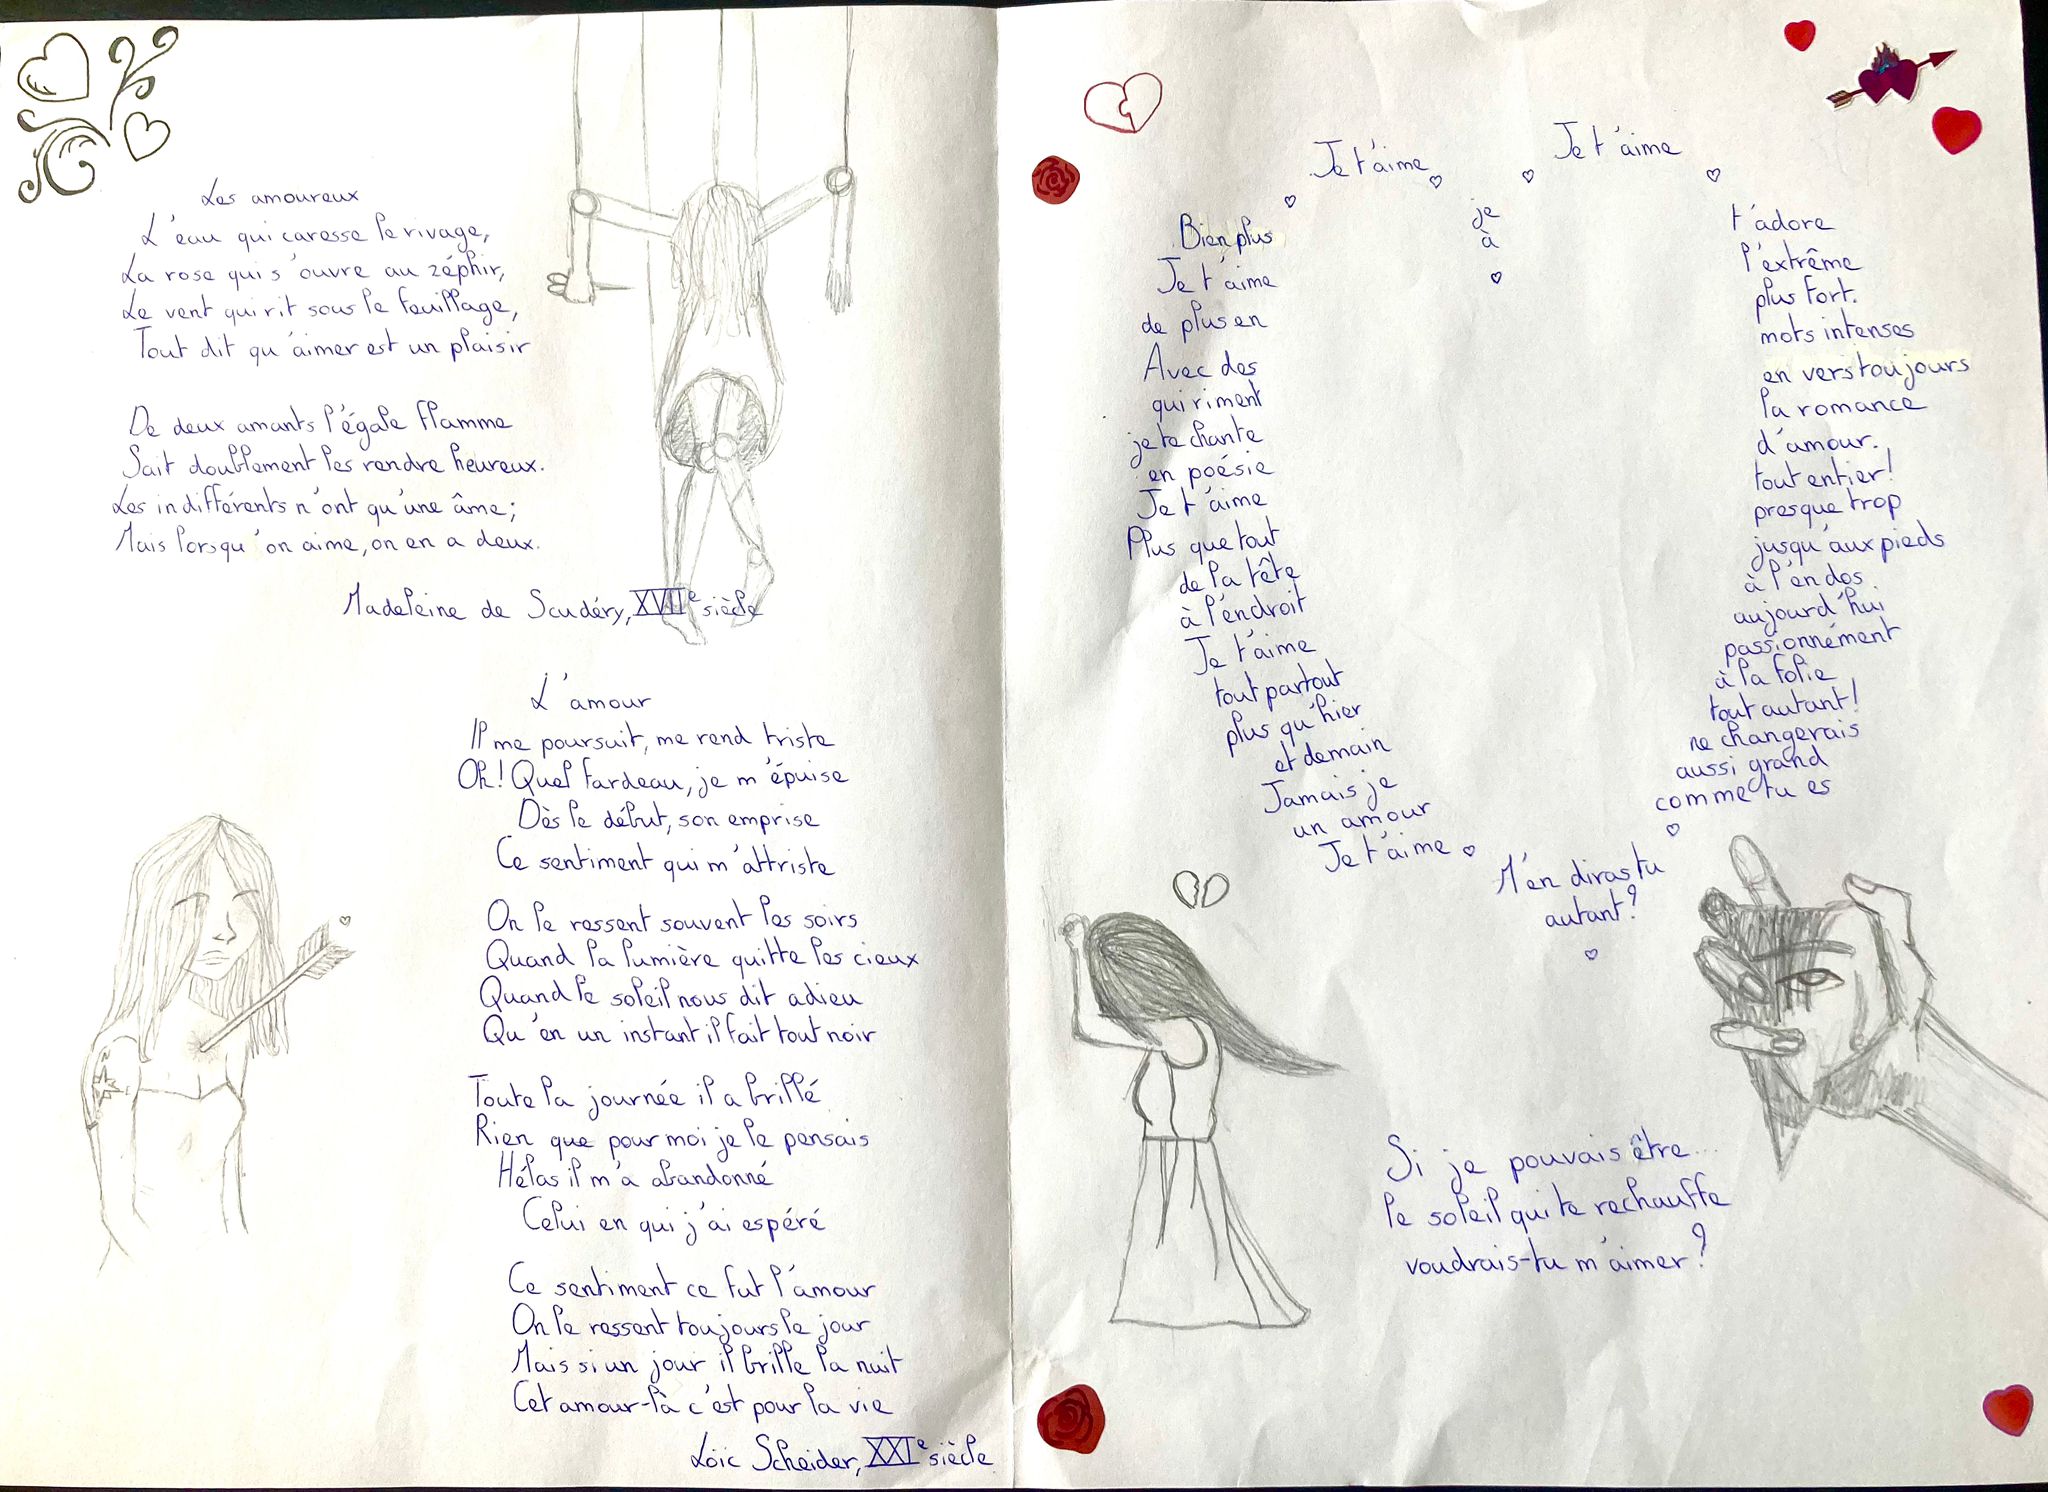 Les amoureux
L'eau qui caresse le rivage,
La rose qui s'ouvre au zéphir,
Le vent qui rit sous le feuillage,
Tout dit qu'aimer est un plaisir
De deux amants l'égale flamme
Sait doublement les rendre heureux.
Les indifférents n'ont qu'une âme;
Mais lorsqu'on aime, on en a deux.
Madeleine de Scudéry, XVIIe siècle
L'amour
Il me poursuit, me rend triste
Oh! Quel fardeau, je m'épuise
Dès le début, son emprise
Ce sentiment qui m'attriste
On le ressent souvent les soirs
Quand la lumière quitte les cieux
Quand le soleil nous dit adieu
Qu'en un instant il fait tout noir
Toute la journée il a brillé
Rien que pour moi je le pensais
Hélas il m'a abandonné
Celui en qui j'ai espéré
Ce sentiment ce fut l'amour
On le ressent toujours le jour
Mais si un jour il brille la nuit
Cet amour-là c'est pour la vie
Loïc Scheider, XXIe siècle
Je t'aime Je t'aime
Bien plus je t'adore
Je t'aime à l'extrême
de plus en plus fort.
Avec des mots intenses
qui riment en vers toujours
je te chante la romance
en poésie d'amour.
Je t'aime tout entier!
Plus que tout presque trop
de la tête jusqu'aux pieds
à l'endroit à l'endos.
Je t'aime aujourd'hui
tout partout passionnément
plus qu'hier à la folie
et demain tout autant!
Jamais je ne changerais
un amour aussi grand
Je t'aime comme tu es
M'en diras tu
autant?
Si je pouvais être...
le soleil qui te rechauffe
voudrais-tu m'aimer?